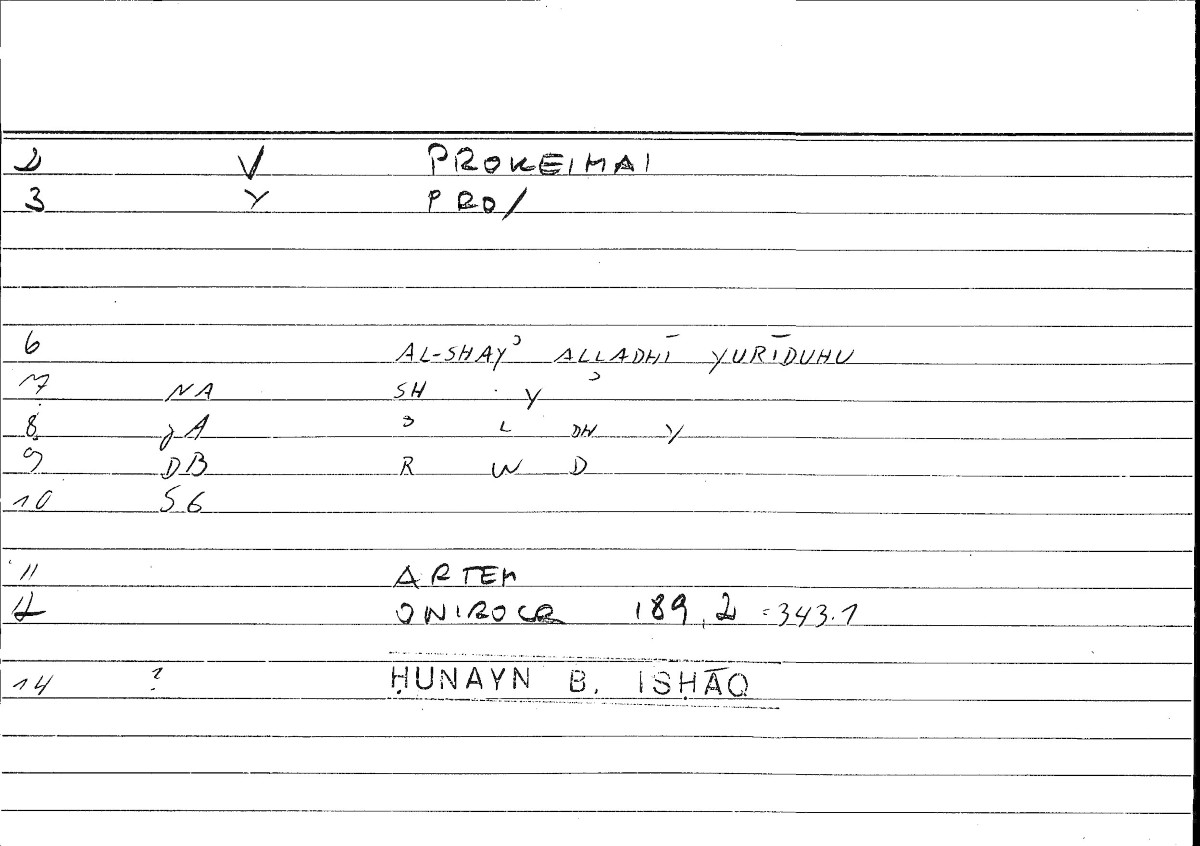 2 V PROKEIMAI
3 Y PRO/
6 AL-SHAYʾ ALLADHĪ YURĪDUHU
7 NA SH . Y ʾ
8 gA ʾ L DH Y
9 DB R W D
10 S6
11 ARTEM
12 ONIROCR 189,2 =343.1
14 ? ḤUNAYN B. ISḤĀQ